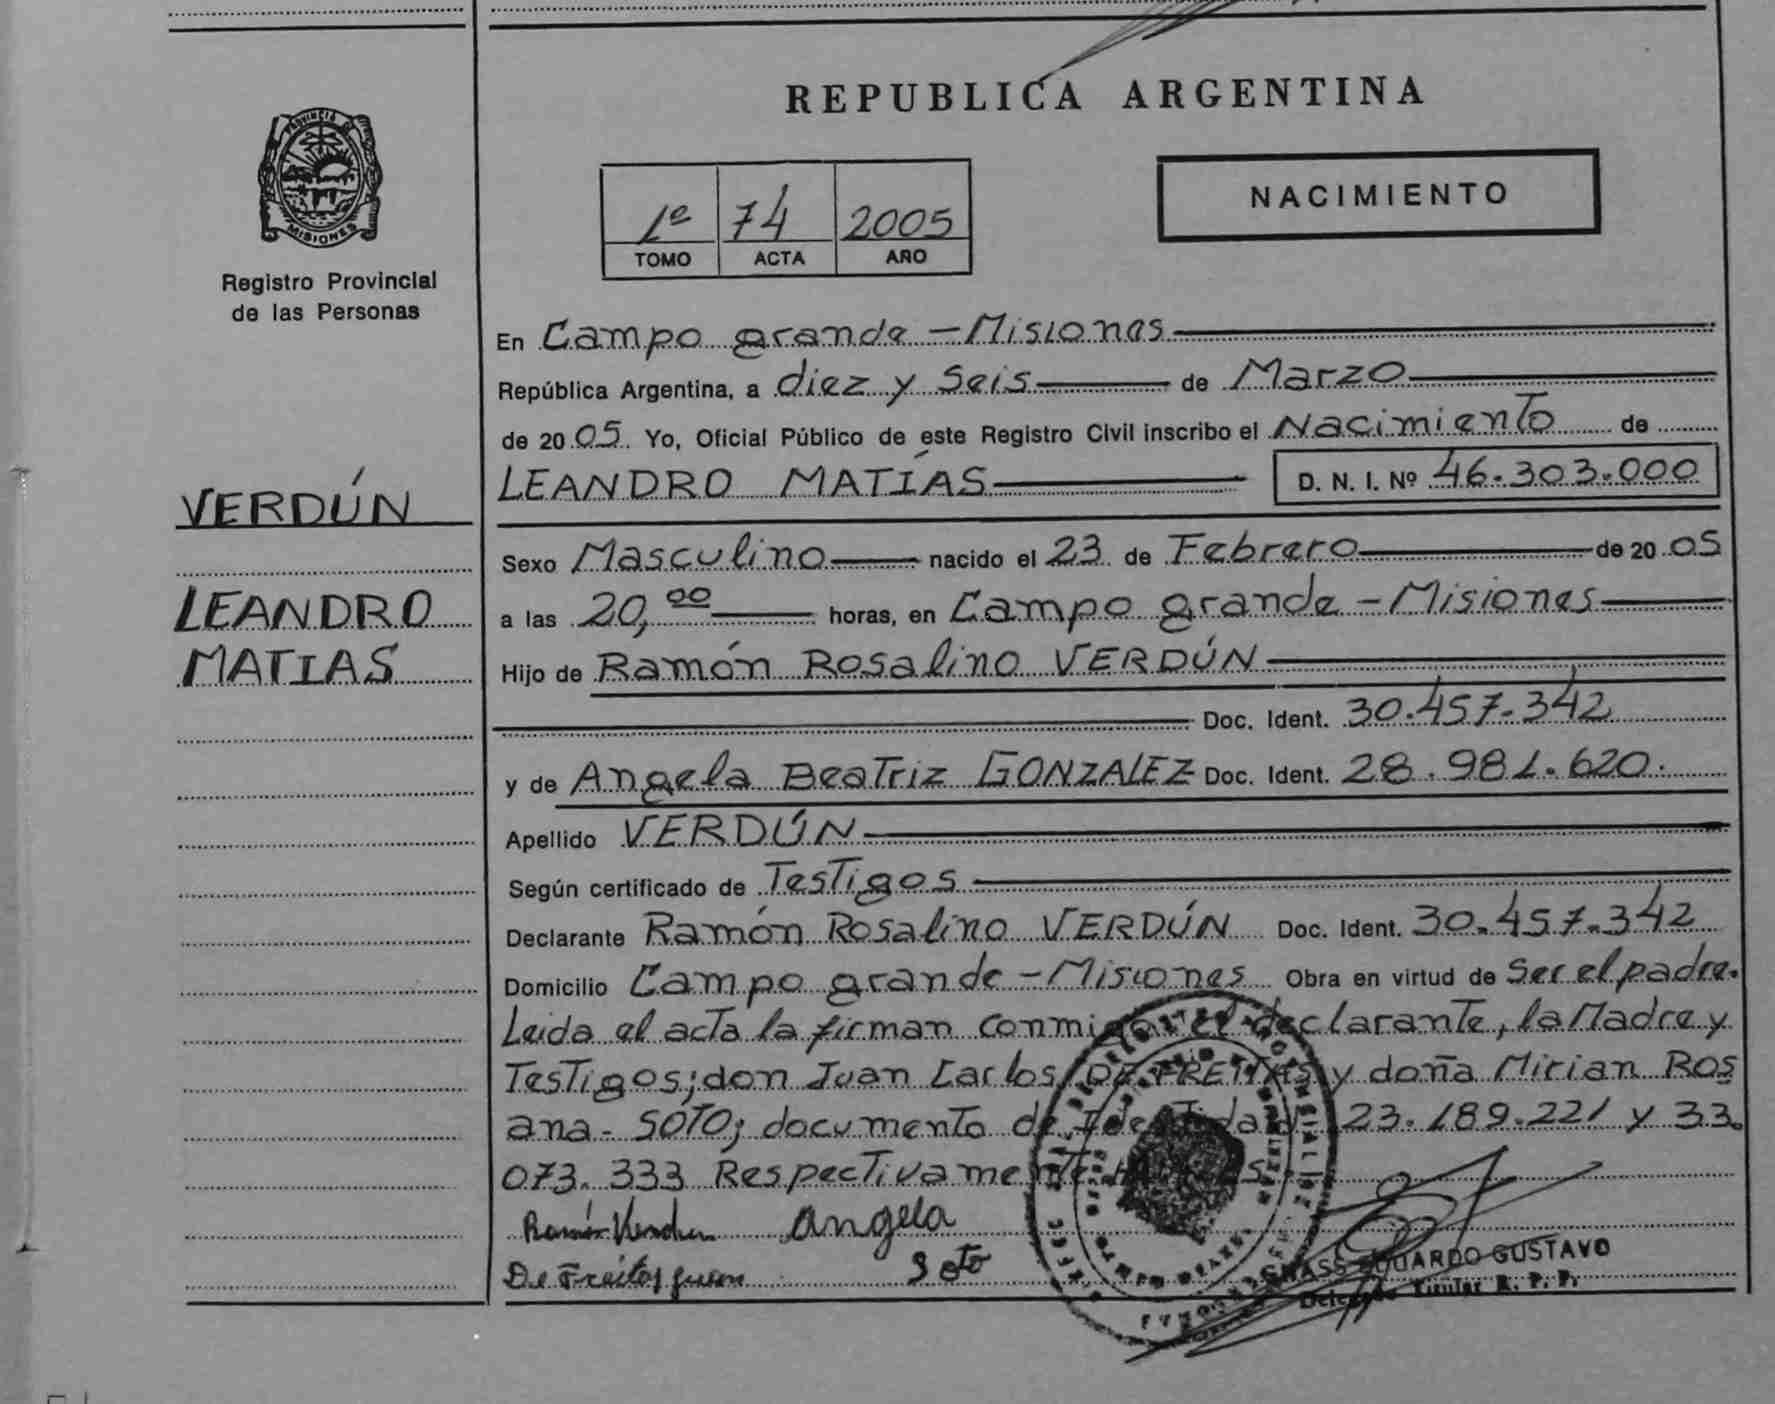 REPUBLICA ARGENTINA
PROVINCIA DE
MISIONES
Registro Provincial
de las Personas
1º 74 2005
TOMO ACTA AÑO
NACIMIENTO
En Campo grande - Misiones
República Argentina, a diez y Seis de Marzo
de 2005. Yo, Oficial Público de este Registro Civil inscribo el Nacimiento de
LEANDRO MATÍAS D. N. I. Nº 46.303.000
VERDÚN
Sexo Masculino nacido el 23 de Febrero de 2005
LEANDRO
a las 20,00 horas, en Campo grande - Misiones
MATIAS
Hijo de Ramón Rosalino VERDÚN
Doc. Ident. 30.457.342
y de Angela Beatriz GONZALEZ Doc. Ident. 28.981.620.
Apellido VERDÚN
Según certificado de Testigos
Declarante Ramón Rosalino VERDÚN Doc. Ident. 30.457.342
Domicilio Campo grande - Misiones Obra en virtud de Ser el padre.
Leida el acta la firman conmigo el declarante, la Madre y
Testigos; don Juan Carlos DE FREITAS y doña Mirian Ros
ana - SOTO; documento de Identidad 23.189.221 y 33.
073.333 Respectivamente
Ramón Verdun Angela
De Freitas Juan Soto
EDUARDO GUSTAVO
Delegado Titular R. P. P.